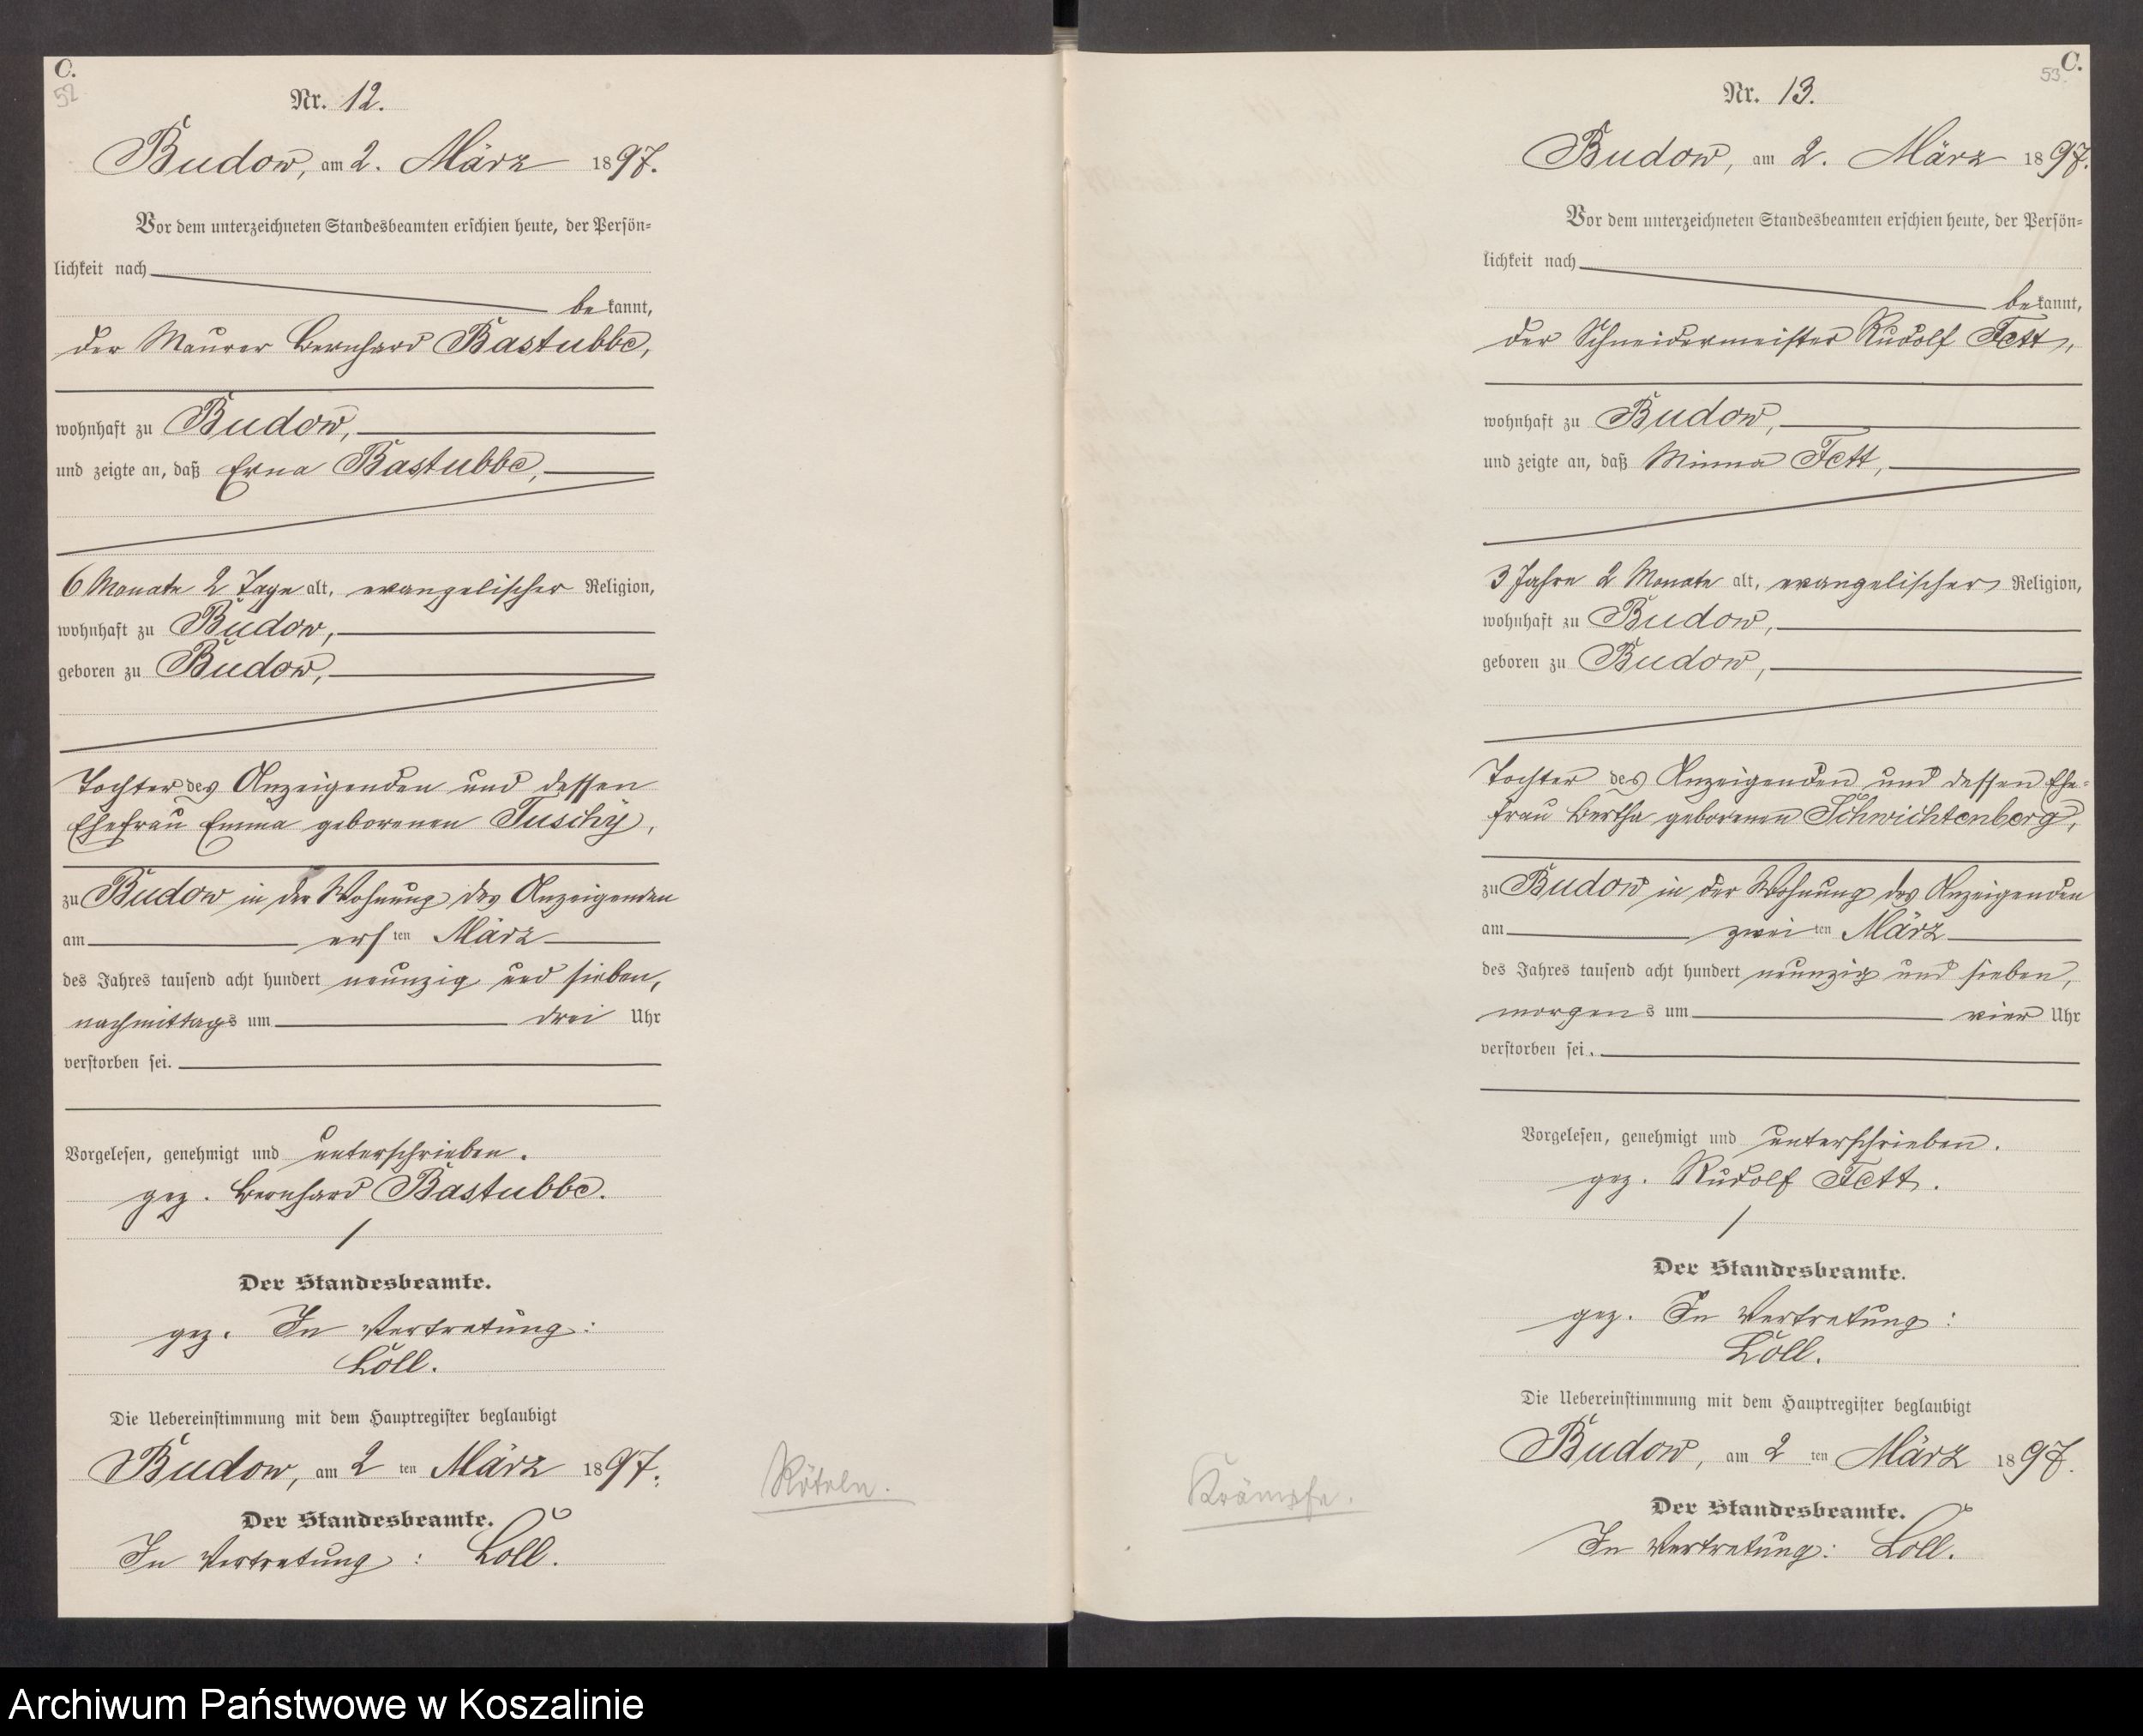 C.
52
Nr. 12.
Budow, am 2. März 1897.
Vor dem unterzeichneten Standesbeamten erschien heute, der Persön-
lichkeit nach
bekannt,
der Maurer Bernhard Bastubbe,
wohnhaft zu Budow,
und zeigte an, daß Erna Bastubbe,
6 Monate 2 Tage alt, evangelischer Religion,
wohnhaft zu Budow,
geboren zu Budow,
Tochter des Anzeigenden und dessen
Ehefrau Emma geborenen Tuschy,
zu Budow in der Wohnung des Anzeigenden
am ersten März
des Jahres tausend acht hundert neunzig und sieben,
nachmittags um drei Uhr
verstorben sei.
Vorgelesen, genehmigt und unterschrieben.
gez. Bernhard Bastubbe.
Der Standesbeamte.
gez. In Vertretung:
Löll.
Die Uebereinstimmung mit dem Hauptregister beglaubigt
Budow, am 2 ten März 1897.
Der Standesbeamte.
In Vertretung: Löll.
Röteln.
53 C.
Nr. 13.
Budow, am 2. März 1897.
Vor dem unterzeichneten Standesbeamten erschien heute, der Persön-
lichkeit nach
bekannt,
der Schneidermeister Rudolf Fett,
wohnhaft zu Budow,
und zeigte an, daß Minna Fett,
3 Jahre 2 Monate alt, evangelischer Religion,
wohnhaft zu Budow,
geboren zu Budow,
Tochter des Anzeigenden und dessen Ehe-
frau Bertha geborenen Schwichtenberg,
zu Budow in der Wohnung des Anzeigenden
am zweiten März
des Jahres tausend acht hundert neunzig und sieben,
morgens um vier Uhr
verstorben sei.
Vorgelesen, genehmigt und unterschrieben.
gez. Rudolf Fett.
Der Standesbeamte.
gez. In Vertretung:
Löll.
Die Uebereinstimmung mit dem Hauptregister beglaubigt
Budow, am 2 ten März 1897.
Der Standesbeamte.
In Vertretung: Löll.
Krämpfe.
Archiwum Państwowe w Koszalinie